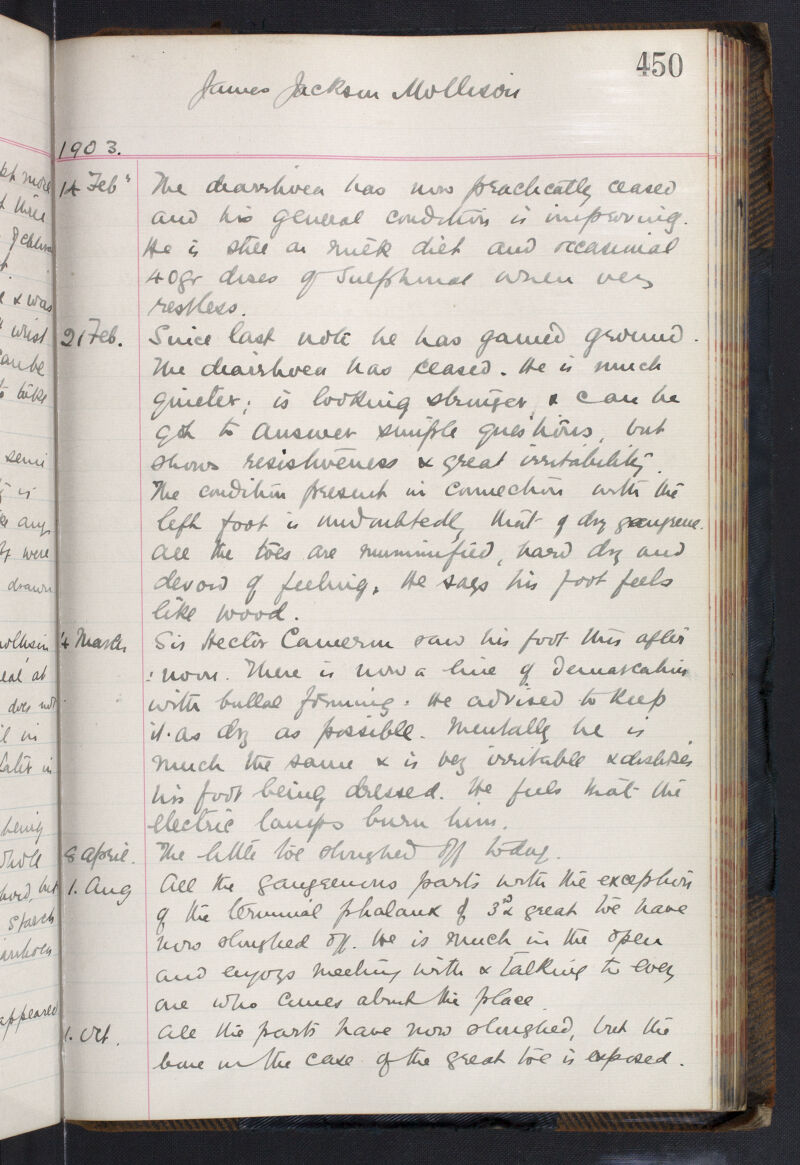 450
James Jackson Mollison
1903.
14 Feb" The diarrhoea has now practically ceased
and his general condition is improving.
He is still on milk diet and occasional
40gr doses of Sulphonal when very
restless.
21 Feb. Since last note he has gained ground.
The diarrhoea has ceased. He is much
quieter; is looking stronger, & can be
got to answer simple questions, but
shows resistiveness & great irritability.
The condition present in connection with the
left foot is undoubtedly that of dry gangrene.
All the toes are mummified, hard dry and
devoid of feeling. He says his foot feels
like wood.
4 March Sir Hector Cameron saw his foot this after
:noon. There is now a line of demarcation
with bullae forming. He advised to keep
it as dry as possible. Mentally he is
much the same & is very irritable & dislikes
his foot being dressed. He feels that the
electric lamps burn him.
8 April. The little toe sloughed off today.
1. Aug All the gangrenous parts with the exception
of the terminal phalanx of 3rd & great toe have
now sloughed off. He is much in the open
and enjoys meeting with & talking to every
one who comes about the place.
1. Oct. All the parts have now sloughed, but the
bone in the case of the great toe is exposed.